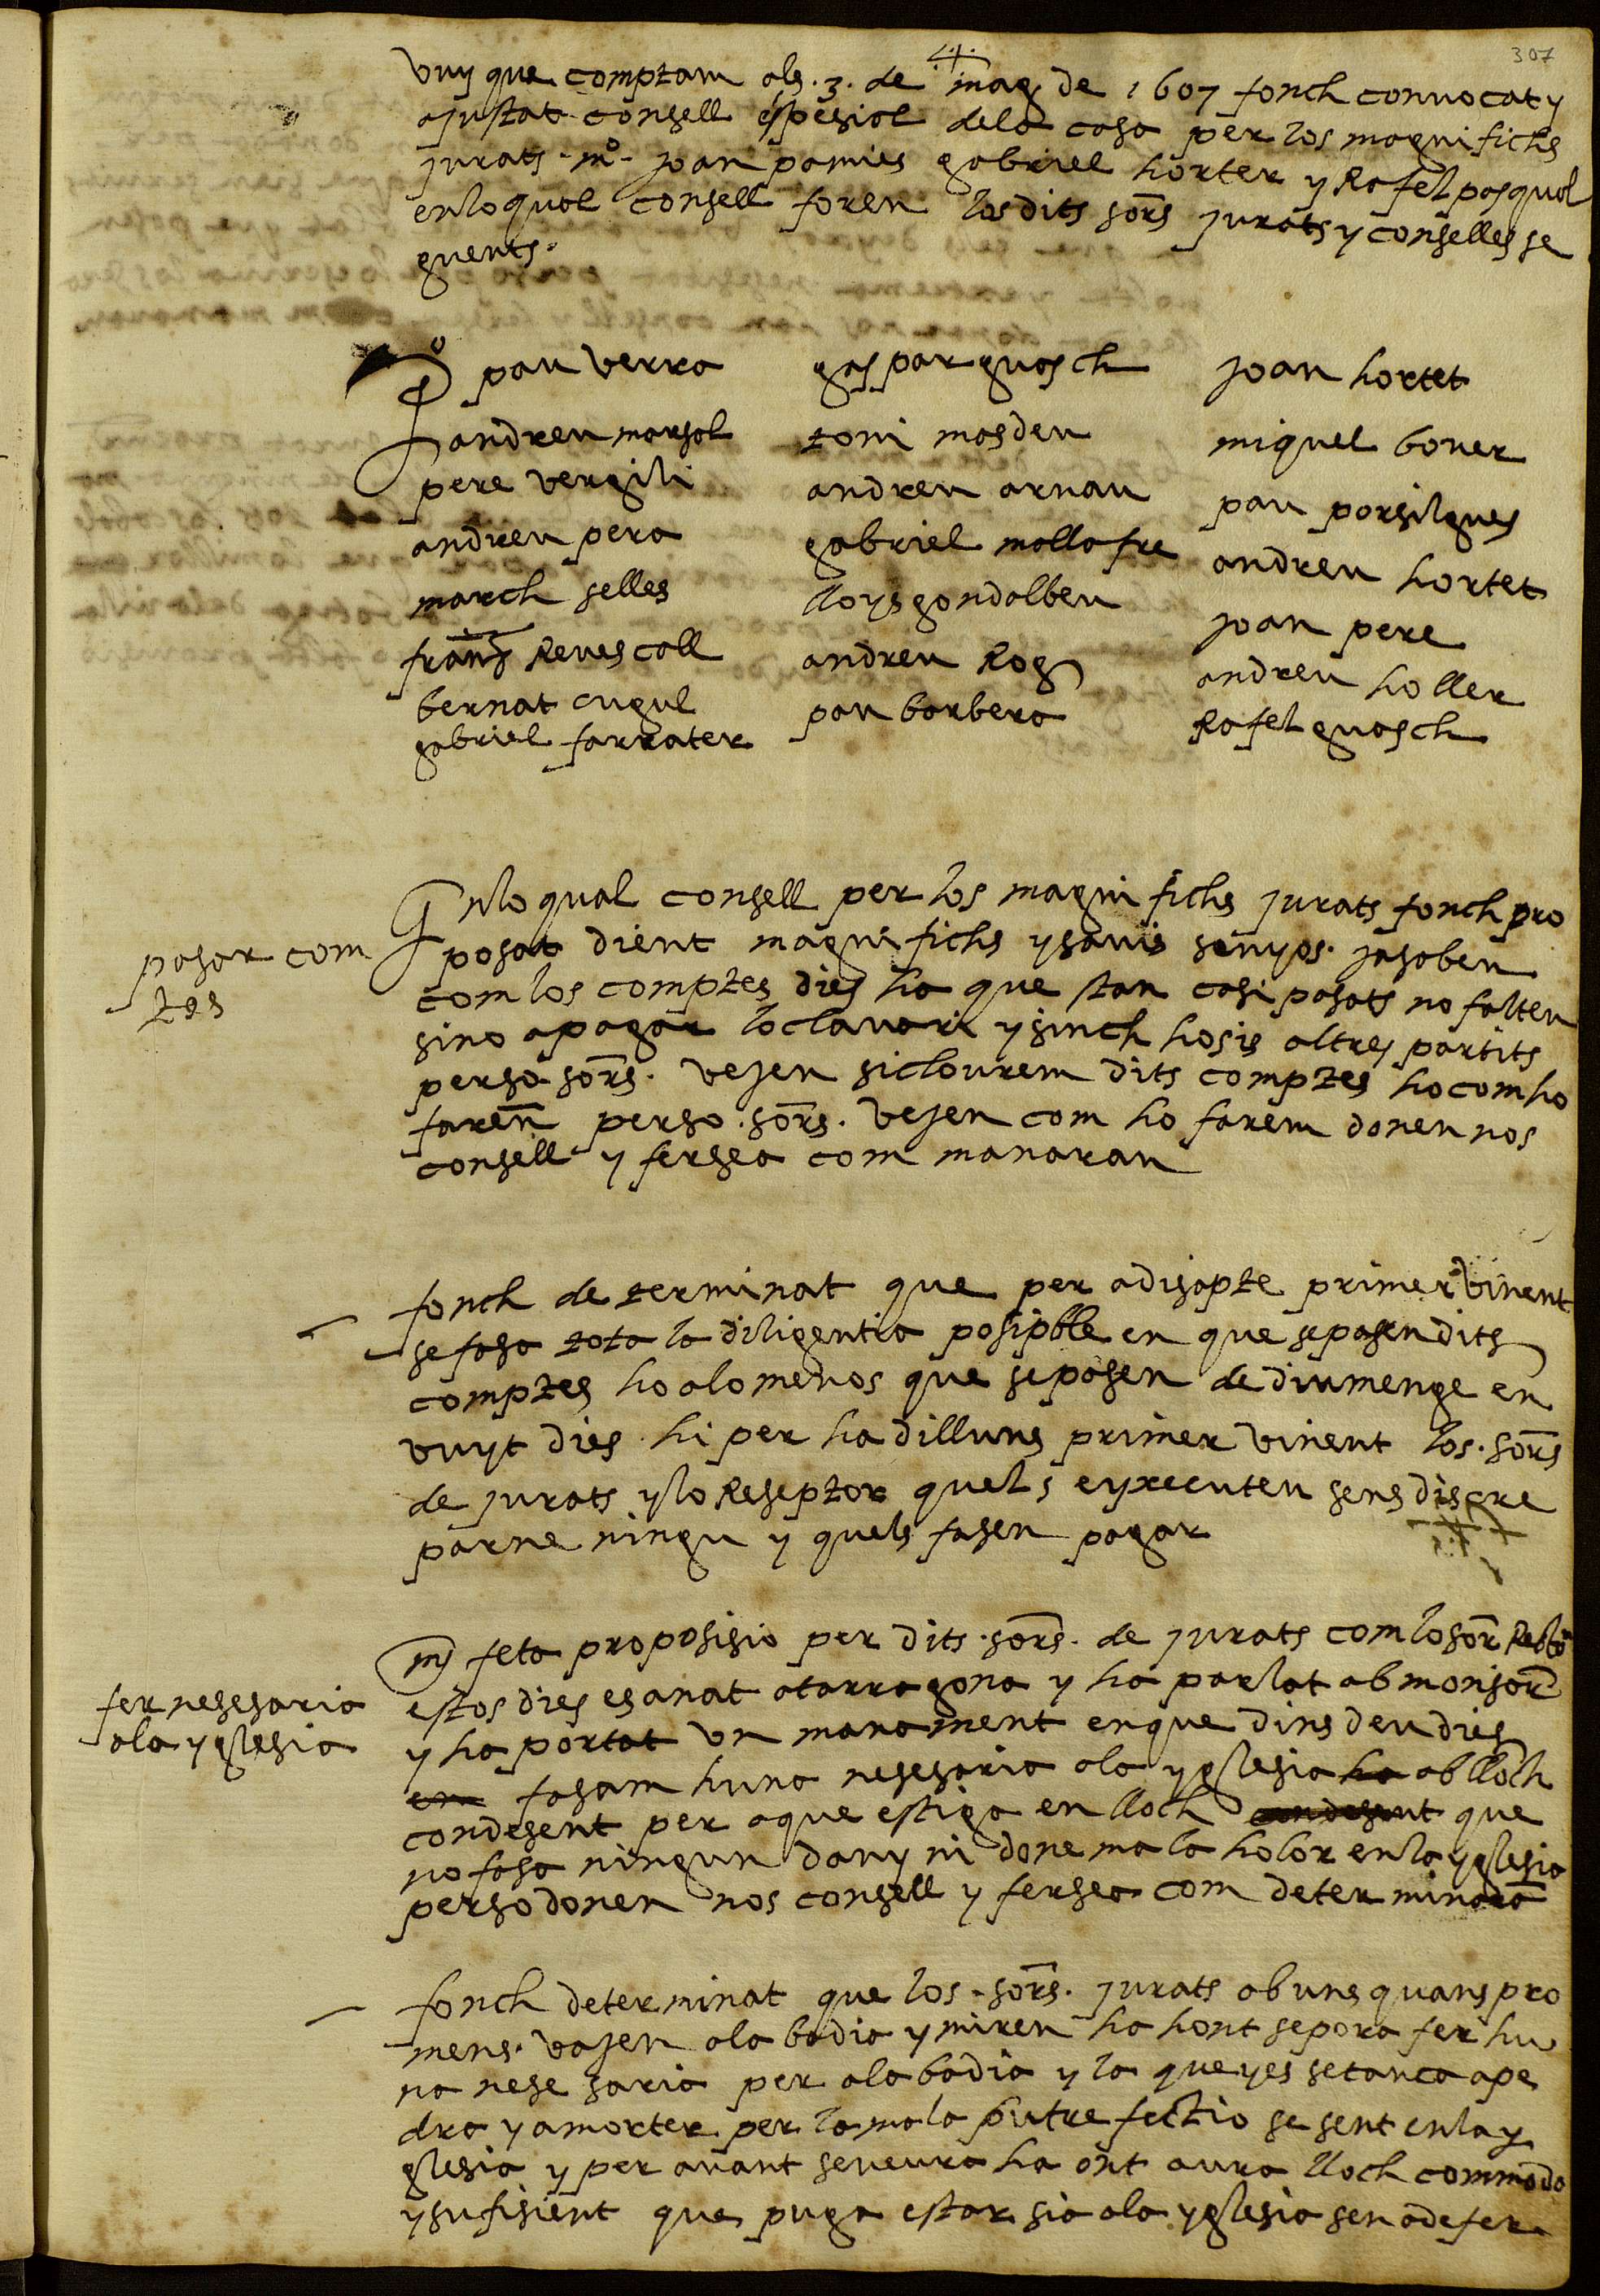 307
vuy que comptam als .3. de mag de 1607 fonch convocat y
ajustat consell espesial dela casa per los magnifichs
jurats m.º joan pamies gabriel horter y Rafel pasqual
enlo qual consell foren los dits sors jurats y conselles se
guents.
pau verra
andreu marsal
pere vergili
andreu pera
march selles
franÿ Revescoll
bernat cugul
gabriel farrater
gaspar guasch
toni masdeu
andreu arnau
gabriel mallafre
lloys gondolbeu
andreu Rog
pau barbera
joan hortet
miquel bover
pau porsilgues
andreu hortet
joan pere
andreu holler
Rafel guasch
Enlo qual consell per los magnifichs jurats fonch pro
posat dient magnifichs y savis senyos. ja saben
com los comptes dies ha que stan casi pasats no falten
sino a pagar lo clavari y sinch ho sis altres partits
perso sors. vejen si clourem dits comptes ho com ho
farem perso sors. vejen com ho farem donen nos
consell y ferse a com manaran
pasar com
tes
fonch determinat que per a disapte primer vinent
se fasa tota la diligentia posipble en que se pasen dits
comptes ho alomenos que se pasen de diumenge en
vuyt dies hi per ha dilluns primer vinent los sors
de jurats y lo Reseptor quels eyxecuten sens discre
parne ningu y quels fasen pagar
mj feta proposisio per dits sors. de jurats com lo sor Rector
estos dies es anat a tarragona y ha parlat ab monsor
y ha portat un manament en que dins deu dies
en fasam huna nesesaria ala yglesia ha ab lloch
condesent per aque estiga en lloch condesent que
no fasa ningun dany ni done mala holor enla yglesia
perso donen nos consell y ferse a com determinara
fer nesesaria
ala yglesia
fonch determinat que los sors. jurats ab uns quans pro
mens. vajen ala badia y miren ha hont se pora fer hu
na nese saria per ala badia y la que yes se tanca a pe
dra y a morter per la mala putrefectio se sent enla y
glesia y per avant se veura ha ont aura lloch commodo
y sufisient que puga estar sia ala yglesia sen a de fer